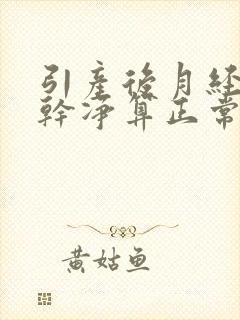 引產後月經
幹淨算正常
黃姑魚